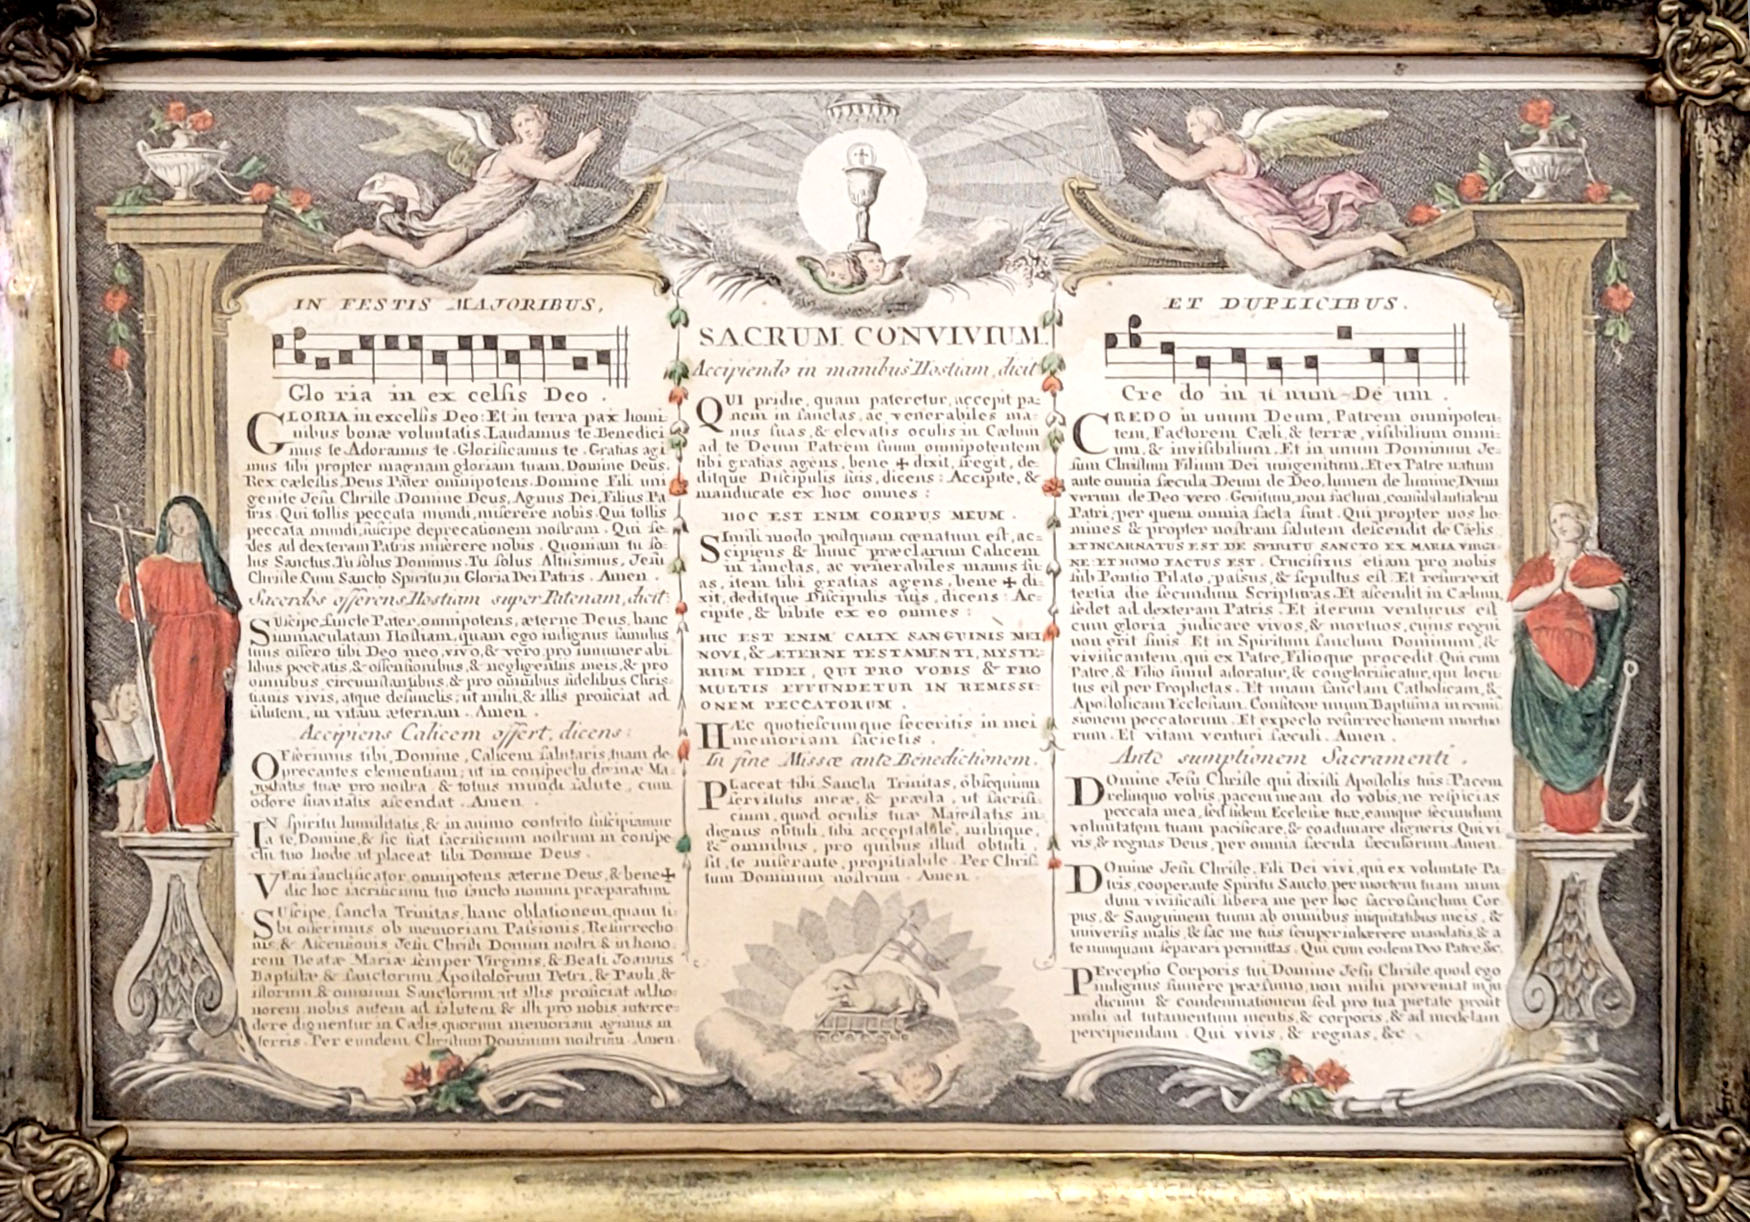 IN FESTIS MAJORIBUS,
Glo ria in ex celsis Deo .
GLORIA in excelsis Deo: Et in terra pax homi-
nibus bonæ voluntatis. Laudamus te. Benedici
mus te. Adoramus te. Glorificamus te. Gratias agi
mus tibi propter magnam gloriam tuam. Domine Deus,
Rex cælestis, Deus Pater omnipotens. Domine Fili uni
genite Jesu Christe Domine Deus, Agnus Dei, Filius Pa
tris. Qui tollis peccata mundi, miserere nobis. Qui tollis
peccata mundi, suscipe deprecationem nostram. Qui se-
des ad dexteram Patris miserere nobis. Quoniam tu so-
lus Sanctus. Tu solus Dominus. Tu solus Altissimus, Jesu
Christe. Cum Sancto Spiritu, in Gloria Dei Patris. Amen.
Sacerdos offerens Hostiam super Patenam, dicit:
Suscipe sancte Pater, omnipotens, æterne Deus, hanc
immaculatam Hostiam, quam ego indignus famulus
tuus offero tibi Deo meo, vivo, & vero, pro innumerabi
libus peccatis, & offensionibus, & negligentiis meis, & pro
omnibus circumstantibus, & pro omnibus fidelibus Chris-
tianis vivis, atque defunctis; ut mihi, & illis proficiat ad
salutem, in vitam æternam. Amen.
Accipiens Calicem offert, dicens:
Offerimus tibi, Domine, Calicem salutaris, tuam de-
precantes clementiam; ut in conspectu divinæ Ma-
jestatis tuæ pro nostra, & totius mundi salute, cum
odore suavitatis ascendat. Amen.
IN spiritu humilitatis, & in animo contrito suscipiamur
a te, Domine, & sic fiat sacrificium nostrum in conspe-
ctu tuo hodie, ut placeat tibi Domine Deus.
VEni sanctificator, omnipotens æterne Deus, & bene✚
dic hoc sacrificium tuo sancto nomini præparatum.
SUscipe, sancta Trinitas, hanc oblationem, quam ti-
bi offerimus ob memoriam Passionis, Resurrectio-
nis, & Ascensionis Jesu Christi Domini nostri & in hono-
rem Beatæ Mariæ semper Virginis, & Beati Joannis
Baptistæ & sanctorum Apostolorum Petri, & Pauli, &
istorum & omnium Sanctorum, ut illis proficiat ad ho-
norem, nobis autem ad salutem & illi pro nobis interce-
dere dignentur in Cælis, quorum memoriam agimus in
terris. Per eundem Christum Dominum nostrum. Amen.
SACRUM CONVIVIUM.
Accipiendo in manibus Hostiam, dicit
QUI pridie, quam pateretur, accepit pa-
nem in sanctas, ac venerabiles ma-
nus suas, & elevatis oculis in Cælum
ad te Deum Patrem suum omnipotentem
tibi gratias agens, bene ✚ dixit, fregit, de-
ditque Discipulis suis, dicens: Accipite, &
manducate ex hoc omnes:
HOC EST ENIM CORPUS MEUM .
SImili modo postquam cœnatum est, ac-
cipiens & hunc præclarum Calicem
in sanctas, ac venerabiles manus su-
as, item tibi gratias agens, bene ✚ di-
xit, deditque Discipulis suis, dicens: Ac-
cipite, & bibite ex eo omnes:
HIC EST ENIM CALIX SANGUINIS MEI
NOVI, & ÆTERNI TESTAMENTI, MYSTE-
RIUM FIDEI, QUI PRO VOBIS & PRO
MULTIS EFFUNDETUR IN REMISSI-
ONEM PECCATORUM .
HÆc quotiescumque feceritis in mei
memoriam facietis .
In fine Missæ ante Benedictionem.
PLaceat tibi Sancta Trinitas, obsequium
servitutis meæ, & præsta, ut sacrifi-
cium, quod oculis tuæ Majestatis in-
dignus obtuli, tibi acceptabile, mihique,
& omnibus, pro quibus illud obtuli,
sit, te miserante, propitiabile. Per Chris-
tum Dominum nostrum. Amen.
ET DUPLICIBUS.
Cre do in u num De um.
CREDO in unum Deum, Patrem omnipoten-
tem, Factorem Cæli, & terræ, visibilium omni-
um, & invisibilium. Et in unum Dominum Je-
sum Christum Filium Dei unigenitum. Et ex Patre natum
ante omnia sæcula. Deum de Deo, lumen de lumine, Deum
verum de Deo vero. Genitum, non factum, consubstantialem
Patri, per quem omnia facta sunt. Qui propter nos ho-
mines & propter nostram salutem descendit de Cælis.
ET INCARNATUS EST DE SPIRITU SANCTO EX MARIA VIRGI-
NE: ET HOMO FACTUS EST. Crucifixus etiam pro nobis
sub Pontio Pilato, passus, & sepultus est. Et resurrexit
tertia die secundum Scripturas. Et ascendit in Cælum,
sedet ad dexteram Patris. Et iterum venturus est
cum gloria judicare vivos, & mortuos, cujus regni
non erit finis. Et in Spiritum sanctum Dominum, &
vivificantem, qui ex Patre, Filioque procedit. Qui cum
Patre, & Filio simul adoratur, & conglorificatur, qui locu-
tus est per Prophetas. Et unam sanctam Catholicam, &
Apostolicam Ecclesiam. Confiteor unum Baptisma in remis-
sionem peccatorum. Et expecto resurrectionem mortuo
rum. Et vitam venturi sæculi. Amen.
Ante sumptionem Sacramenti.
DOmine Jesu Christe qui dixisti Apostolis tuis: Pacem
relinquo vobis, pacem meam do vobis, ne respicias
peccata mea, sed fidem Ecclesiæ tuæ, eamque secundum
voluntatem tuam pacificare, & coadunare digneris. Qui vi
vis, & regnas Deus, per omnia sæcula sæculorum. Amen.
DOmine Jesu Christe, Fili Dei vivi, qui ex voluntate Pa-
tris, cooperante Spiritu Sancto, per mortem tuam mun
dum vivificasti libera me per hoc sacrosanctum Cor-
pus, & Sanguinem tuum ab omnibus iniquitatibus meis, &
universis malis, & fac me tuis semper inhærere mandatis, & a
te nunquam separari permittas. Qui cum eodem Deo Patre, &c.
PErceptio Corporis tui Domine Jesu Christe, quod ego
indignus sumere præsumo, non mihi proveniat in ju
dicium & condemnationem sed pro tua pietate prosit
mihi ad tutamentum mentis, & corporis, & ad medelam
percipiendam. Qui vivis, & regnas, &c.